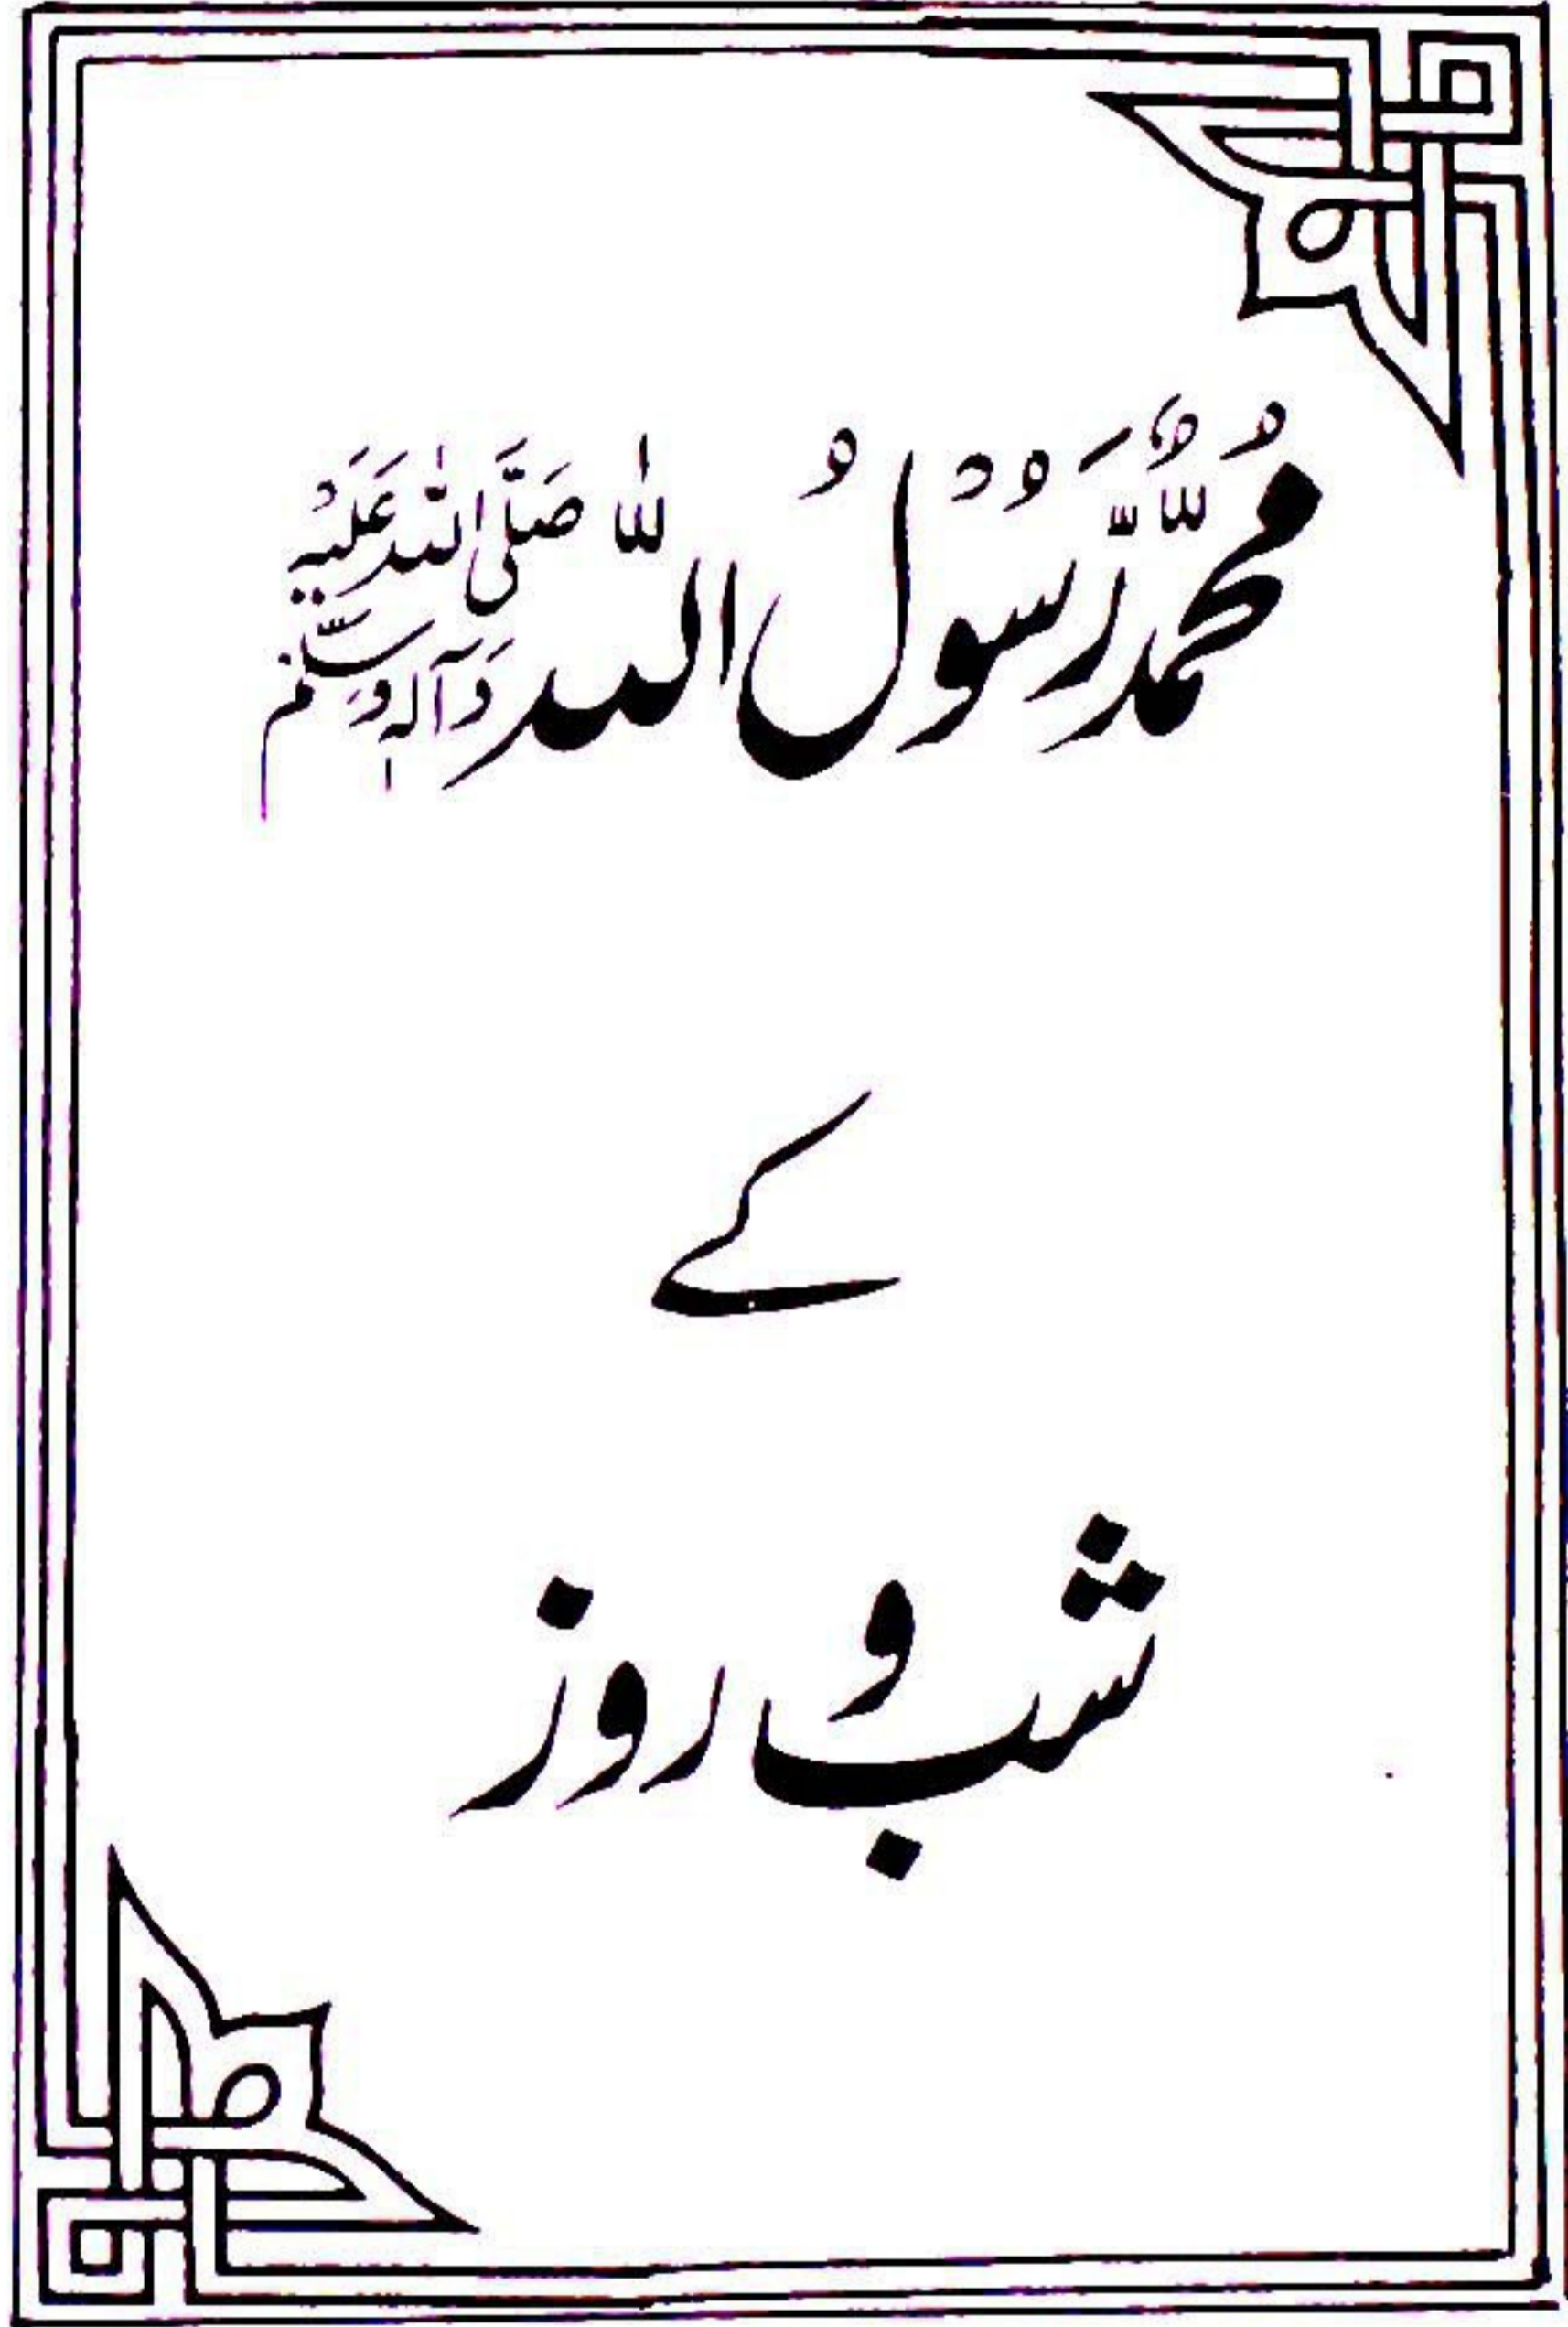 مُحَمَّدٌ رَّسُوْلُ اللّٰہ صَلَّی اللّٰہُ عَلَیْہِ وَآلِہٖ وَسَلَّم
کے
شب و روز